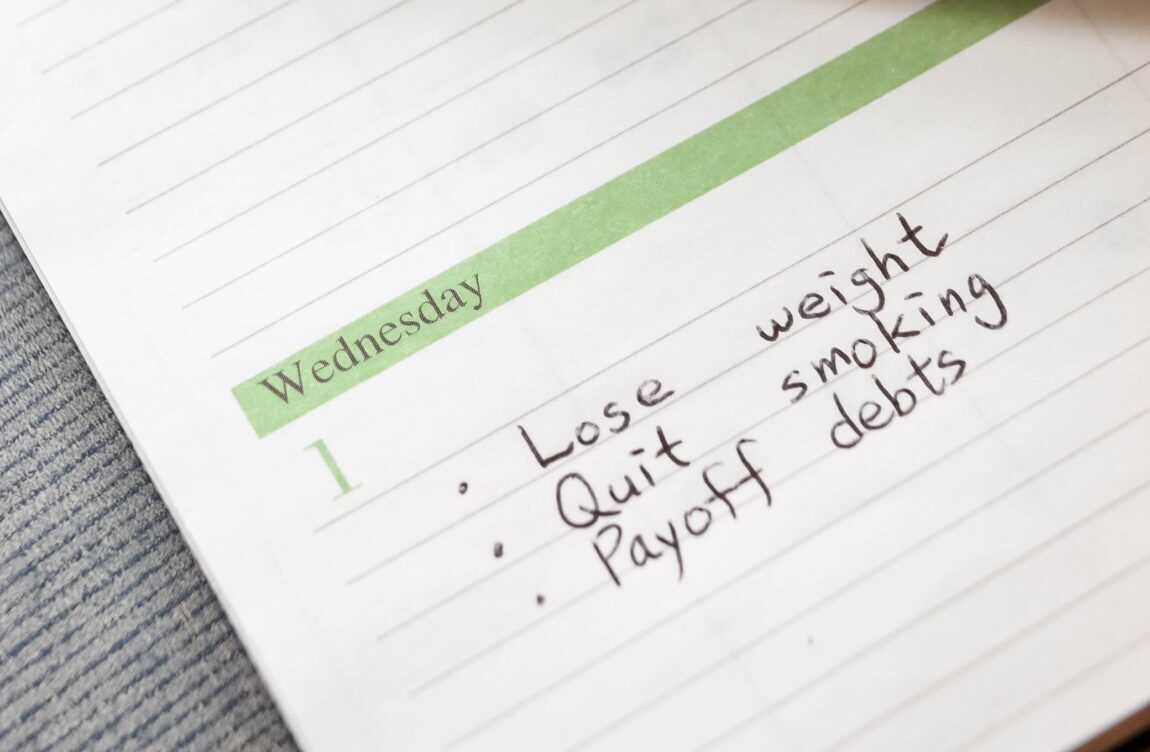 Wednesday
1
• Lose weight
• Quit smoking
• Payoff debts